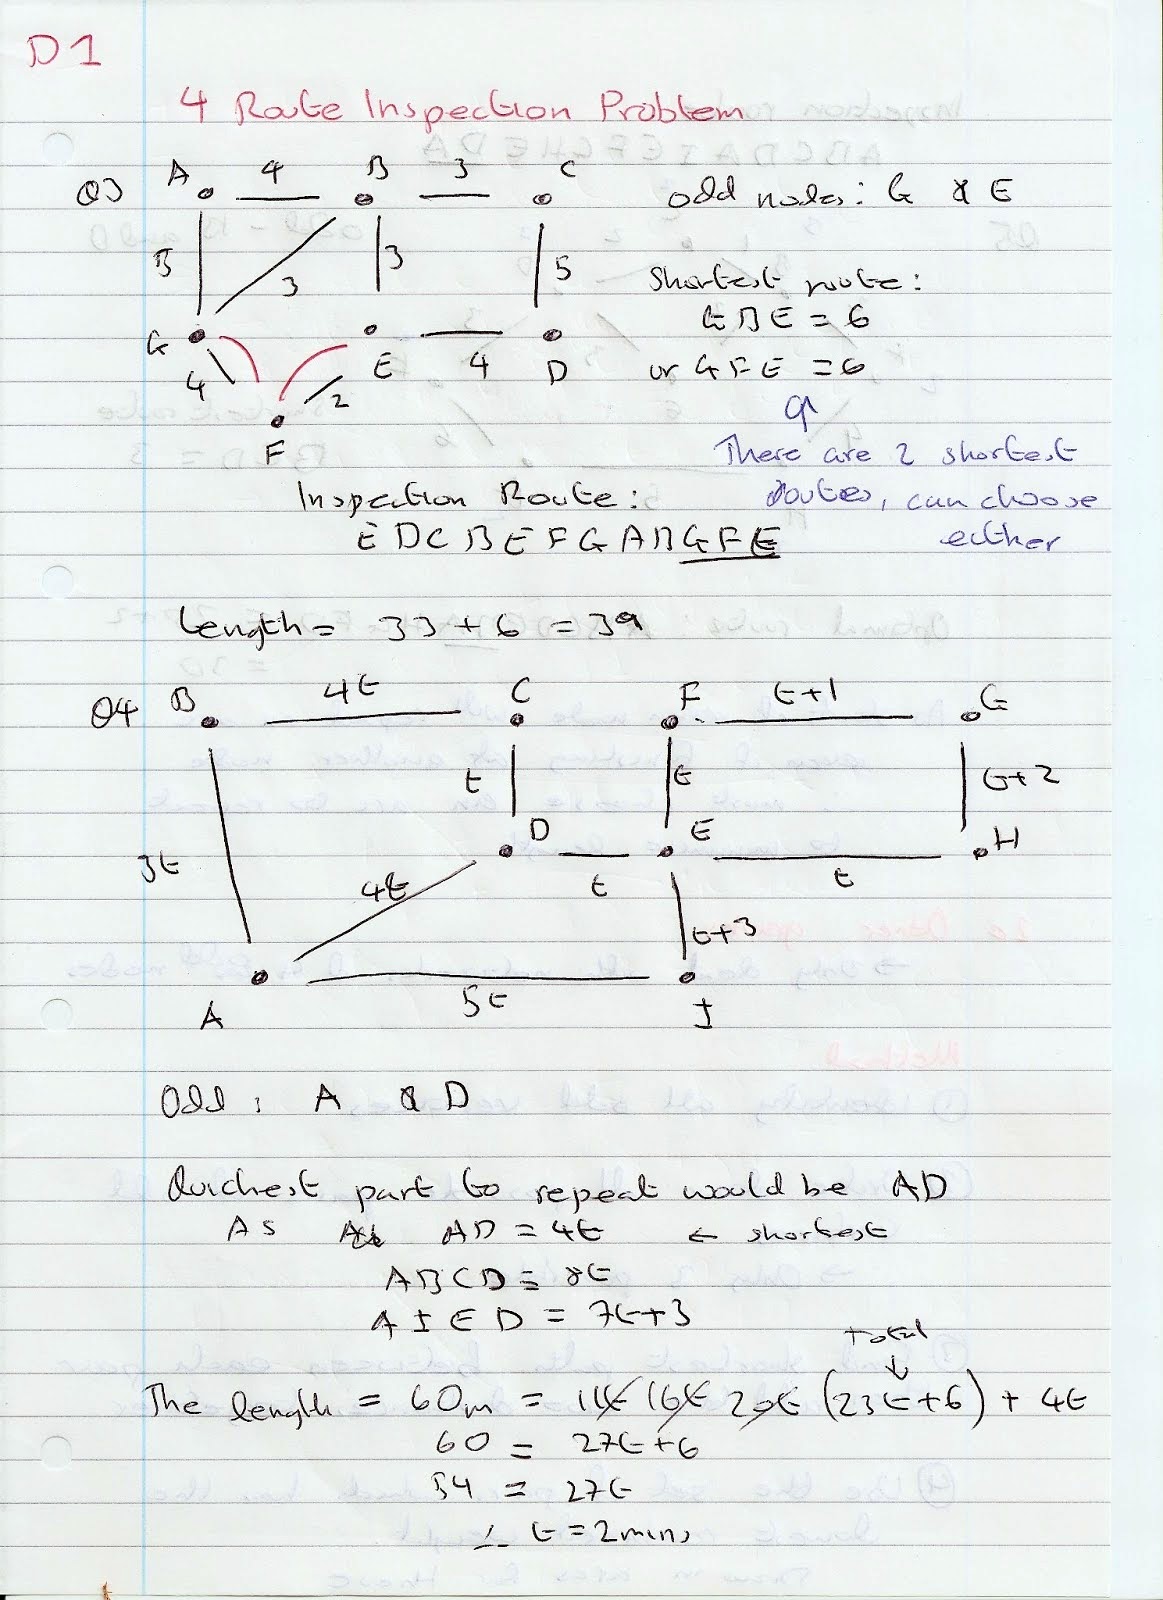 D1
4 Route Inspection Problem
Q3
A 4 B 3 C
odd nodes: G & E
5 3 3 5
Shortest route:
GBE = 6
G 4 E 4 D
or GFE = 6
2
F
There are 2 shortest
routes, can choose
either
Inspection Route:
EDCBEFGABGFE
Length = 33 + 6 = 39
Q4 B 4t C F t+1 G
t t t+2
D E H
3t 4t t t
t+3
5t
A I
Odd: A & D
Quickest part to repeat would be AD
As AD = 4t ← shortest
ABCD = 8t
AIED = 7t+3
total
The length = 60m = 11t 16t 20t (23t+6) + 4t
60 = 27t+6
54 = 27t
∴ t = 2mins